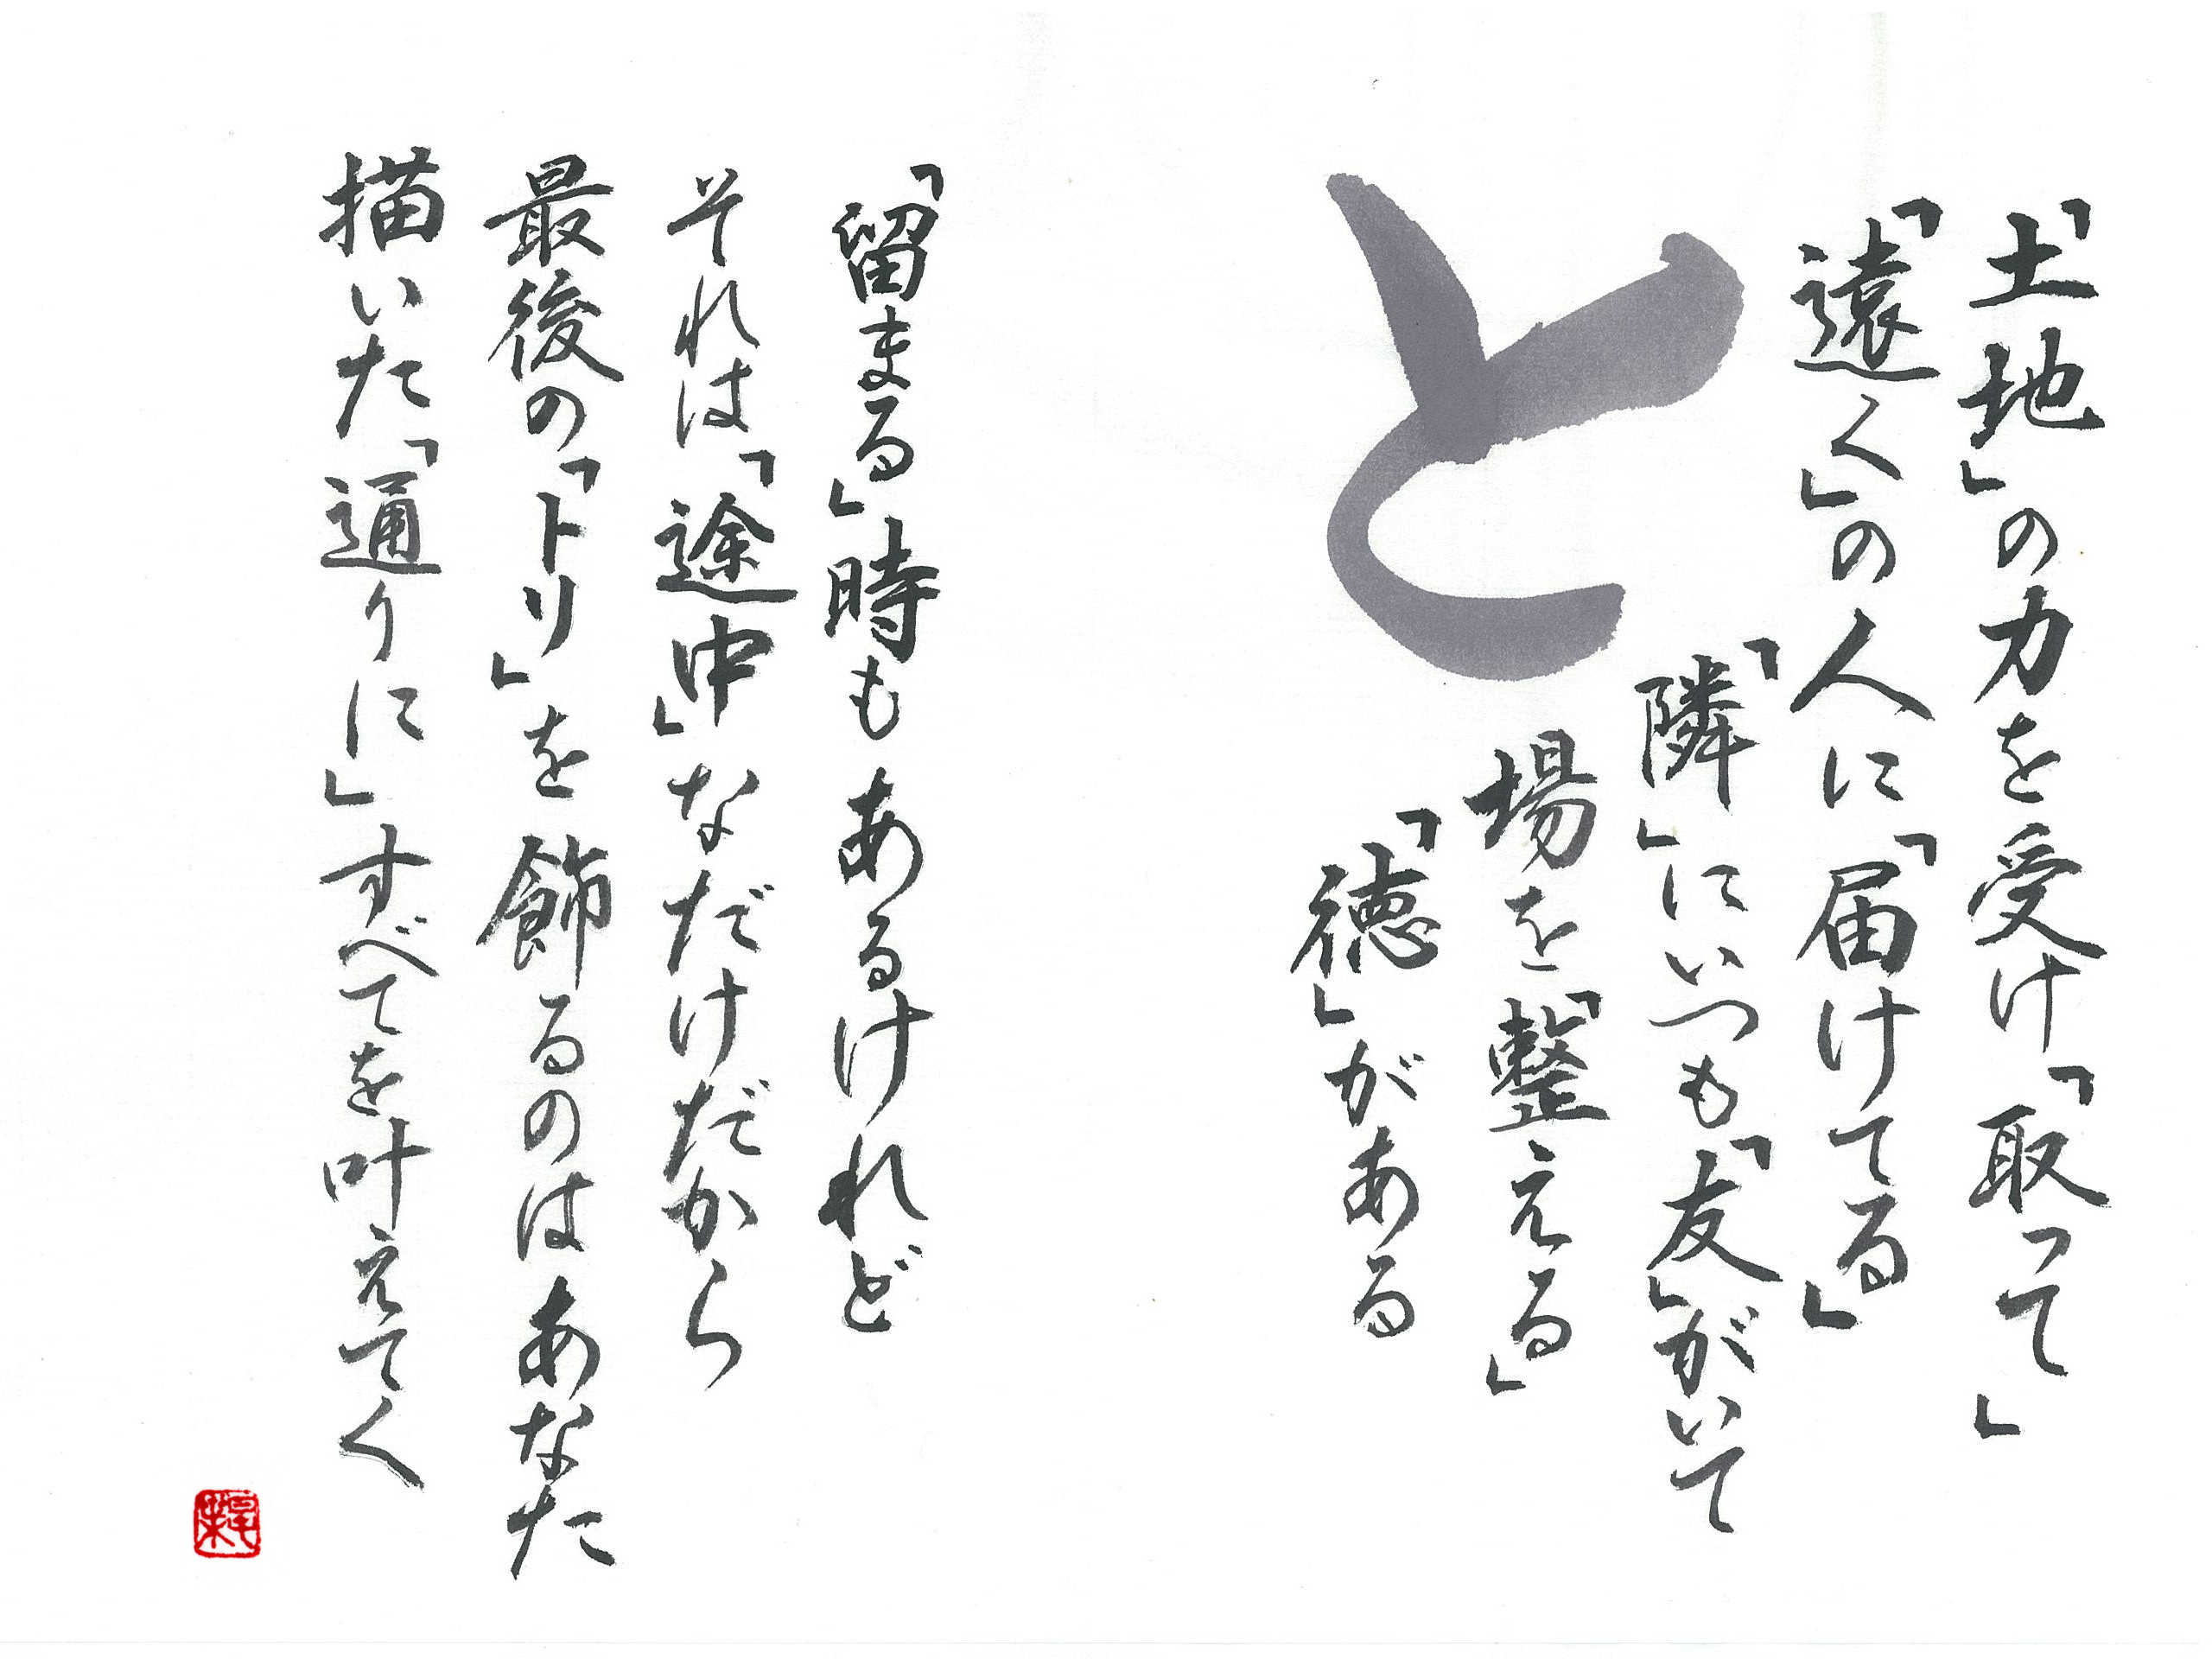 「土地」の力を受け「取って」
「遠く」の人に「届けてる」
「隣」にいつも「友」がいて
場を「整える」
「徳」がある
と
「留まる」時もあるけれど
それは「途中」なだけだから
最後の「トリ」を飾るのはあなた
描いた「通りに」すべてを叶えてく